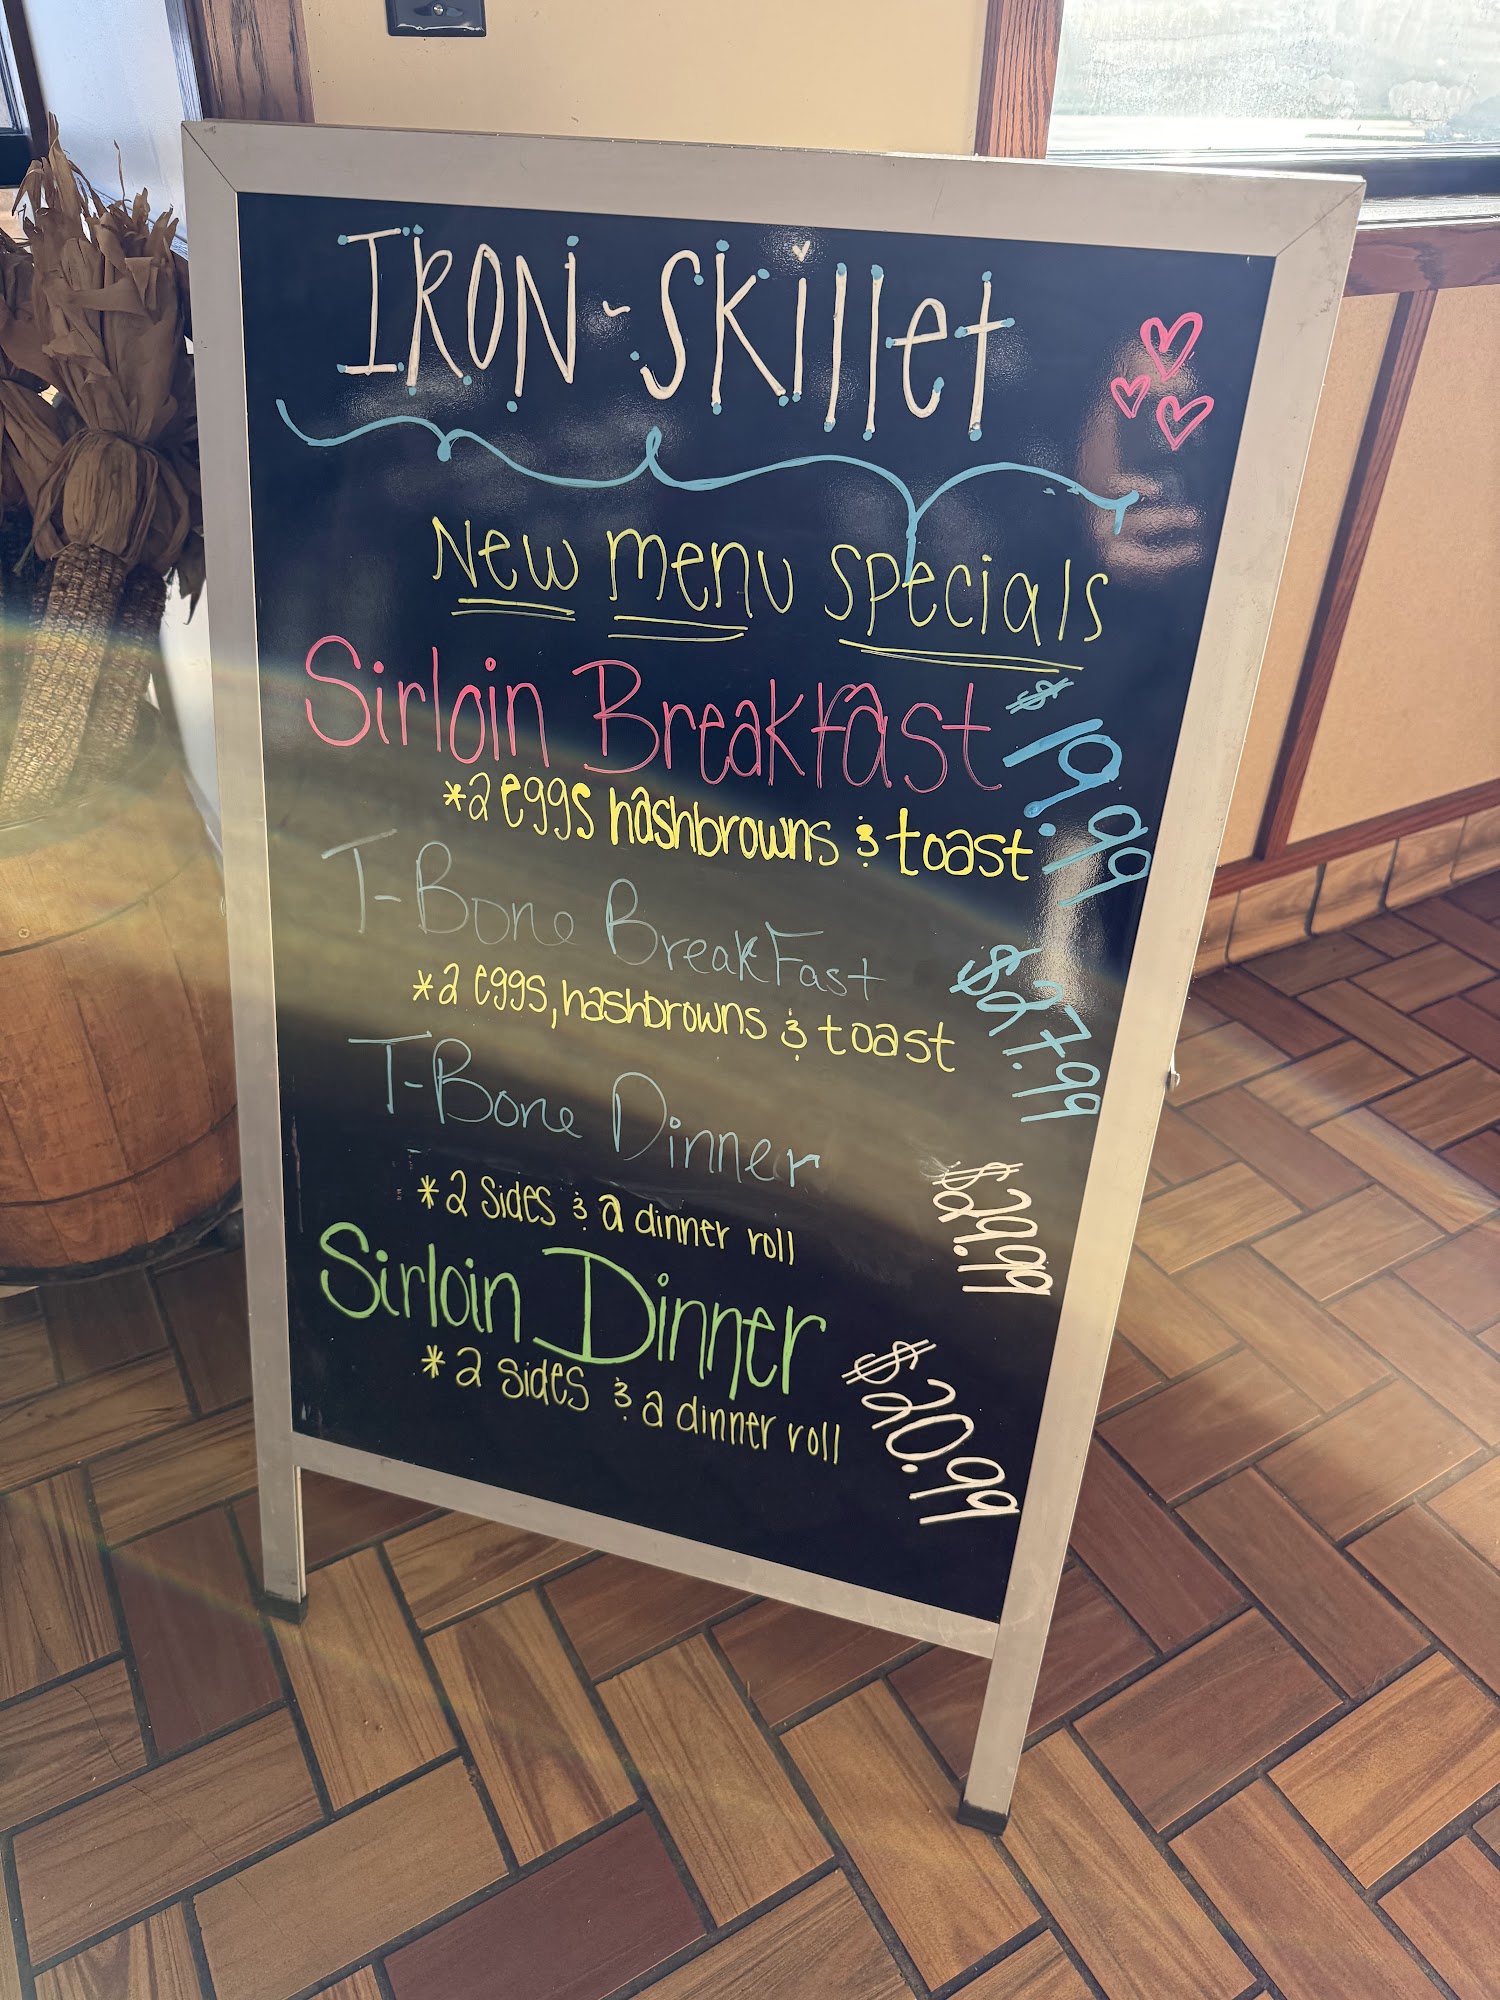 IRON-Skillet
New menu specials
Sirloin Breakfast $19.99
*2 eggs hashbrowns & toast
T-Bone BreakFast $27.99
*2 eggs, hashbrowns & toast
T-Bone Dinner $29.99
*2 sides & a dinner roll
Sirloin Dinner $20.99
*2 sides & a dinner roll